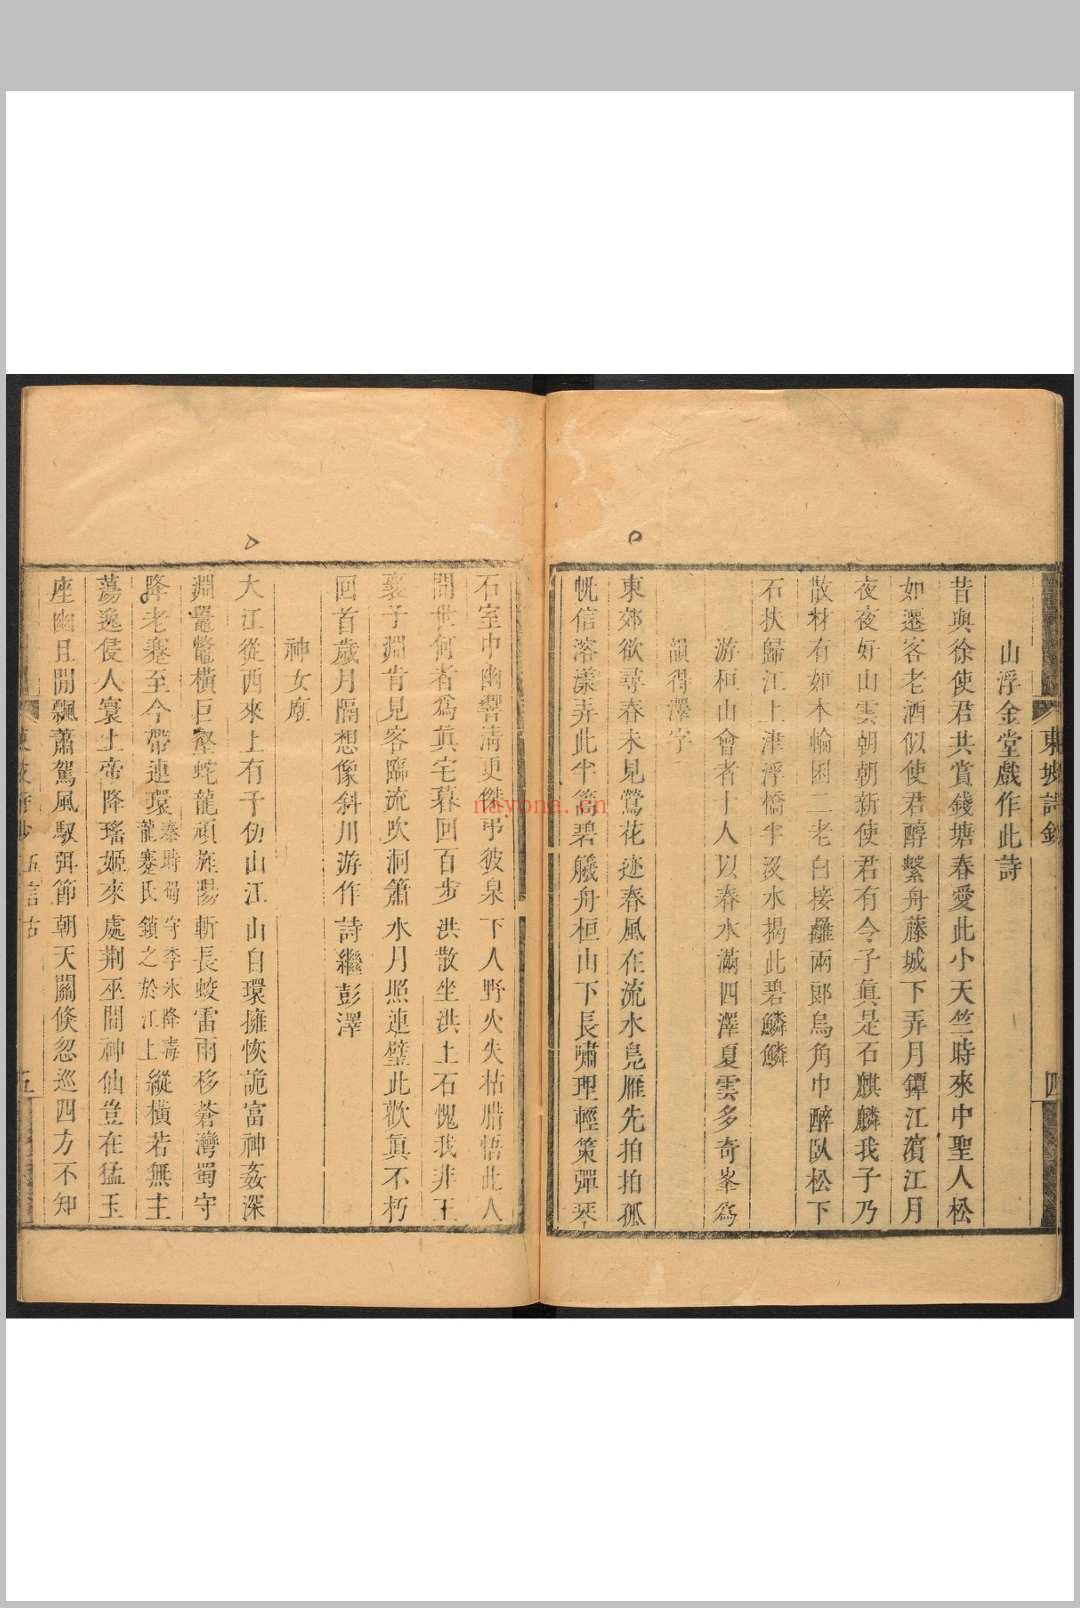 東坡詩鈔
四
山浮金堂戲作此詩
昔與徐使君共賞錢塘春愛此小天竺時來中聖人松
如遷客老酒似使君醇繫舟藤城下弄月鐔江濱江月
夜夜好山雲朝朝新使君有令子眞是石麒麟我子乃
散材有如木輪囷二老白接䍦兩郎烏角巾醉臥松下
石扶歸江上津浮橋半沒水揭此碧鱗鱗
游桓山會者十人以春水滿四澤夏雲多奇峯爲
韻得澤字
東郊欲尋春未見鶯花迹春風在流水鳧雁先拍拍孤
帆信溶漾弄此半篙碧艤舟桓山下長嘯理輕策彈琴
石室中幽響清更傑弔彼泉下人野火失枯腊悟此人
間世何者爲眞宅暮回百步洪散坐洪上石愧我非王
襄子淵肯見客臨流吹洞簫水月照連璧此歡眞不朽
回首歲月隔想像斜川游作詩繼彭澤
神女廟
大江從西來上有千仞山江山自環擁恢詭富神姦深
淵鼉鼈橫巨壑蛇龍頑旌陽斬長蛟雷雨移蒼灣蜀守
降老蹇至今帶連環秦時蜀守李冰降毒龍蹇氏鎖之於江上縱橫若無主
蕩逸侵人寰上帝降瑤姬來處荆巫間神仙豈在猛玉
座幽且閒飄蕭駕風馭弭節朝天關倐忽巡四方不知
五言古
五
nayona.cn